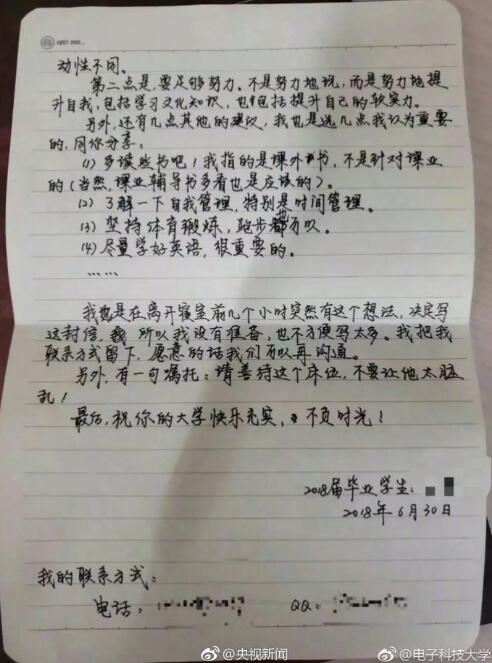 动性不同。
第二点是要足够努力。不是努力地玩，而是努力地提
升自我，包括学习文化知识，也包括提升自己的软实力。
另外，还有几点其他的建议，我也是选几点我认为重要
的，同你分享：
(1) 多读些书吧！我指的是课外书，不是针对课业
的（当然，课业辅导书多看也是应该的）。
(2) 了解一下自我管理，特别是时间管理。
(3) 坚持体育锻炼，跑步也可以。
(4) 尽量学好英语，很重要的。
……
我也是在离开寝室前几个小时突然有这个想法，决定写
这封信，所以我没有准备，也不方便写太多。我把我
联系方式留下，愿意的话我们可以再沟通。
另外，有一句嘱托：请善待这个床位，不要让他太脏
乱！
最后，祝你的大学快乐充实，不负时光！
2018届毕业学生：
2018年6月30日
我的联系方式：
电话： QQ：
@央视新闻 @电子科技大学